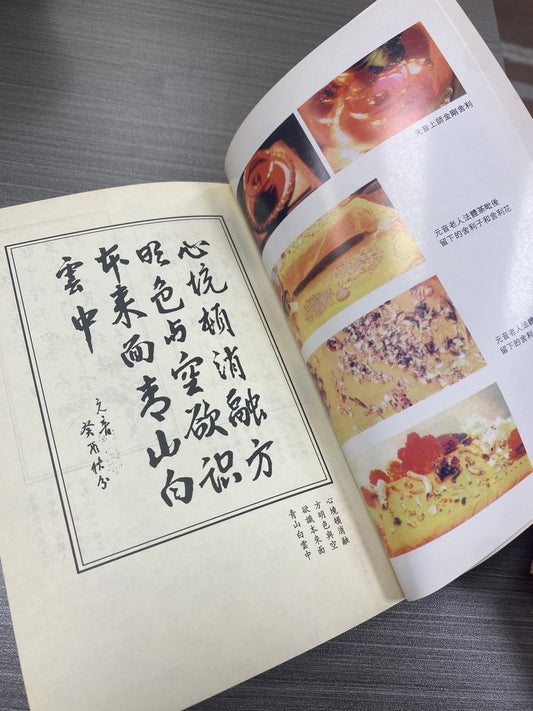 心境頓消融方
明色与空欲识
本来面青山白
雲中
元音
癸酉秋分
心境頓消融
方明色與空
欲識本來面
青山白雲中
元音上師金剛舍利
元音老人法體荼毗後
留下的舍利子和舍利花
元音老人法體
留下的舍利